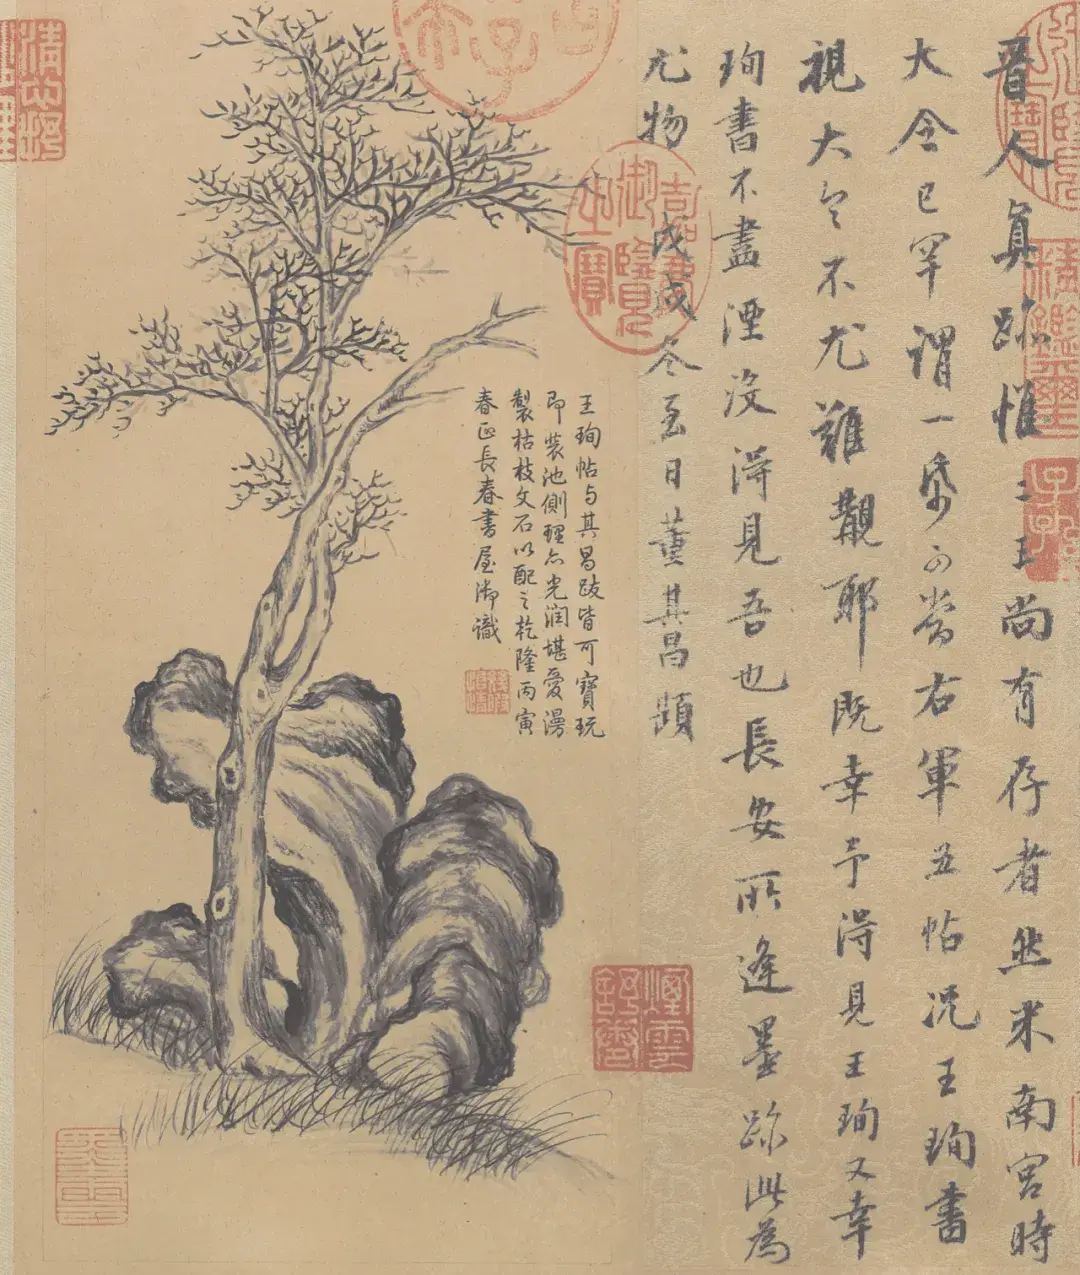 晉人真跡惟二王尚有存者然米南宮時
大令已罕謂一帋可當右軍五帖况王珣書
視大令不尤難覯耶既幸予得見王珣又幸
珣書不盡湮沒得見吾也長安所逢墨跡此為
尤物 戊戌冬至日董其昌題
嘉慶御覽之寶
王珣帖与其昌跋皆可寶玩
即裝池側理亦光潤堪愛漫
製枯枝文石以配之乾隆丙寅
春正長春書屋御識